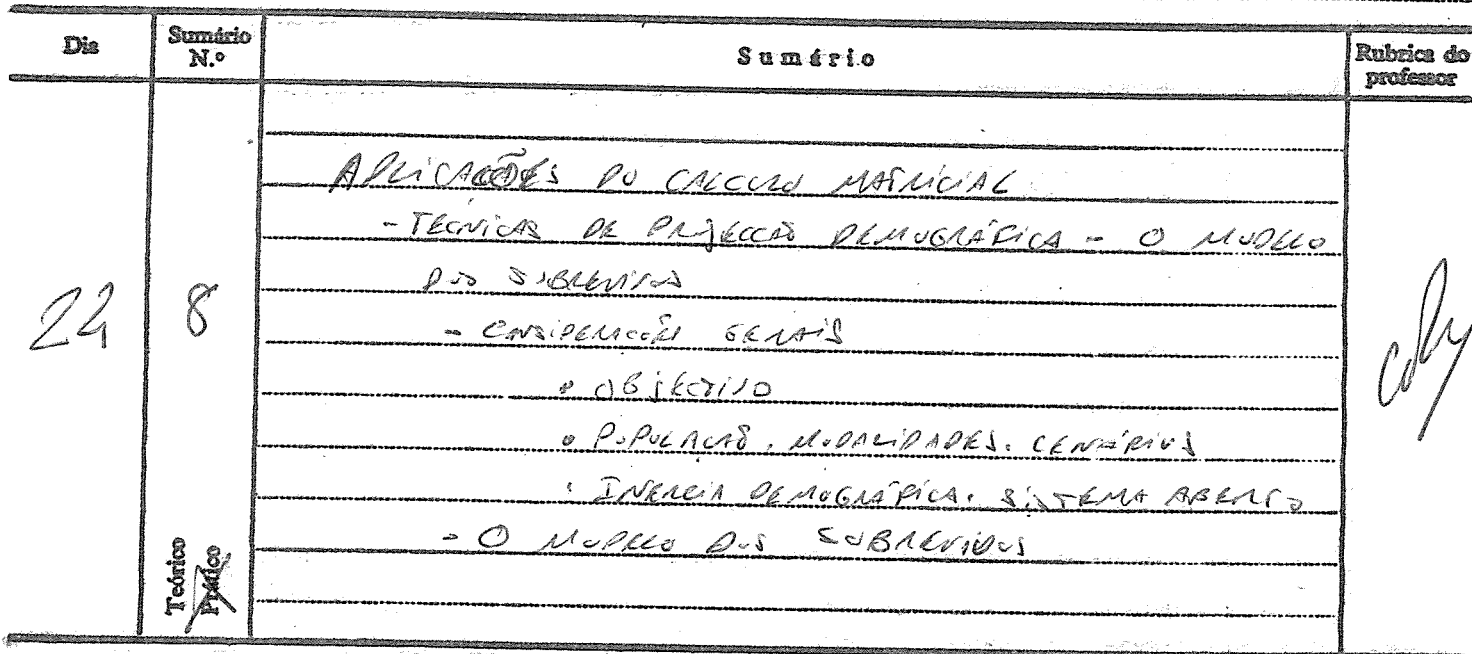 Dia
Sumário N.º
Sumário
Rubrica do professor
APLICAÇÕES DO CALCULO MATRICIAL
- TECNICAS DE PROJECÇÃO DEMOGRÁFICA - O MODELO
DOS SOBREVIVOS
- CONSIDERAÇÕES GERAIS
• OBJECTIVO
• POPULAÇÃO. MODALIDADES. CENÁRIOS
• INERCIA DEMOGRÁFICA. SISTEMA ABERTO
- O MODELO DOS SOBREVIVOS
22
8
Teórico
Prático